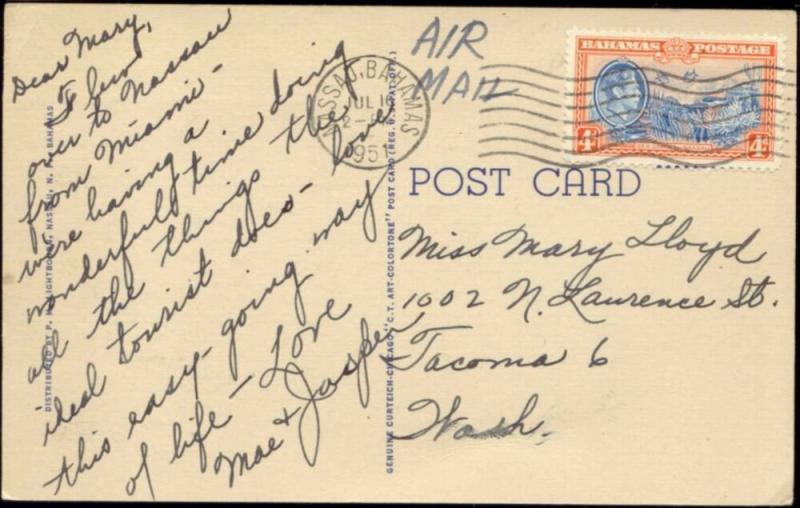 Dear Mary,
Flew
over to Nassau
from Miami -
were having a
wonderful time doing
all the things the
ideal tourist does - love
this easy-going way
of life - Love
Mae & Jasper
DISTRIBUTED BY P. NASSAU, N. BAHAMAS
GENUINE CURTEICH-CHICAGO "C.T. ART-COLORTONE" POST CARD (REG. U.S. PAT. OFF.)
AIR
MAIL
NASSAU, BAHAMAS
JUL 16
1951
BAHAMAS POSTAGE
4d 4d
POST CARD
Miss Mary Lloyd
1002 N. Laurence St.
Tacoma 6
Wash.